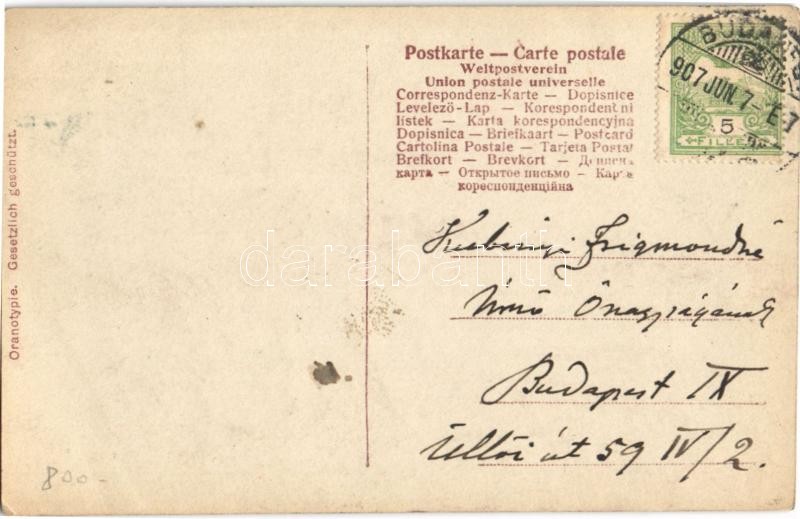 Postkarte — Carte postale
Weltpostverein
Union postale universelle
Correspondenz-Karte — Dopisnice
Levelező-Lap — Korespondentni
lístek — Karta korespondencyjna
Dopisnica — Briefkaart — Postcard
Cartolina Postale — Tarjeta Postal
Brefkort — Brevkort — Дописна
карта — Открытое письмо — Карта
кореспонденційна
BUDAPEST
907 JUN. 7
5
FILLÉR
Kubinyi Zsigmondné
Úrnő Őnagyságának
Budapest IX
Üllői út 59 IV/2.
Oranotypie. Gesetzlich geschützt.
darabanth
800-